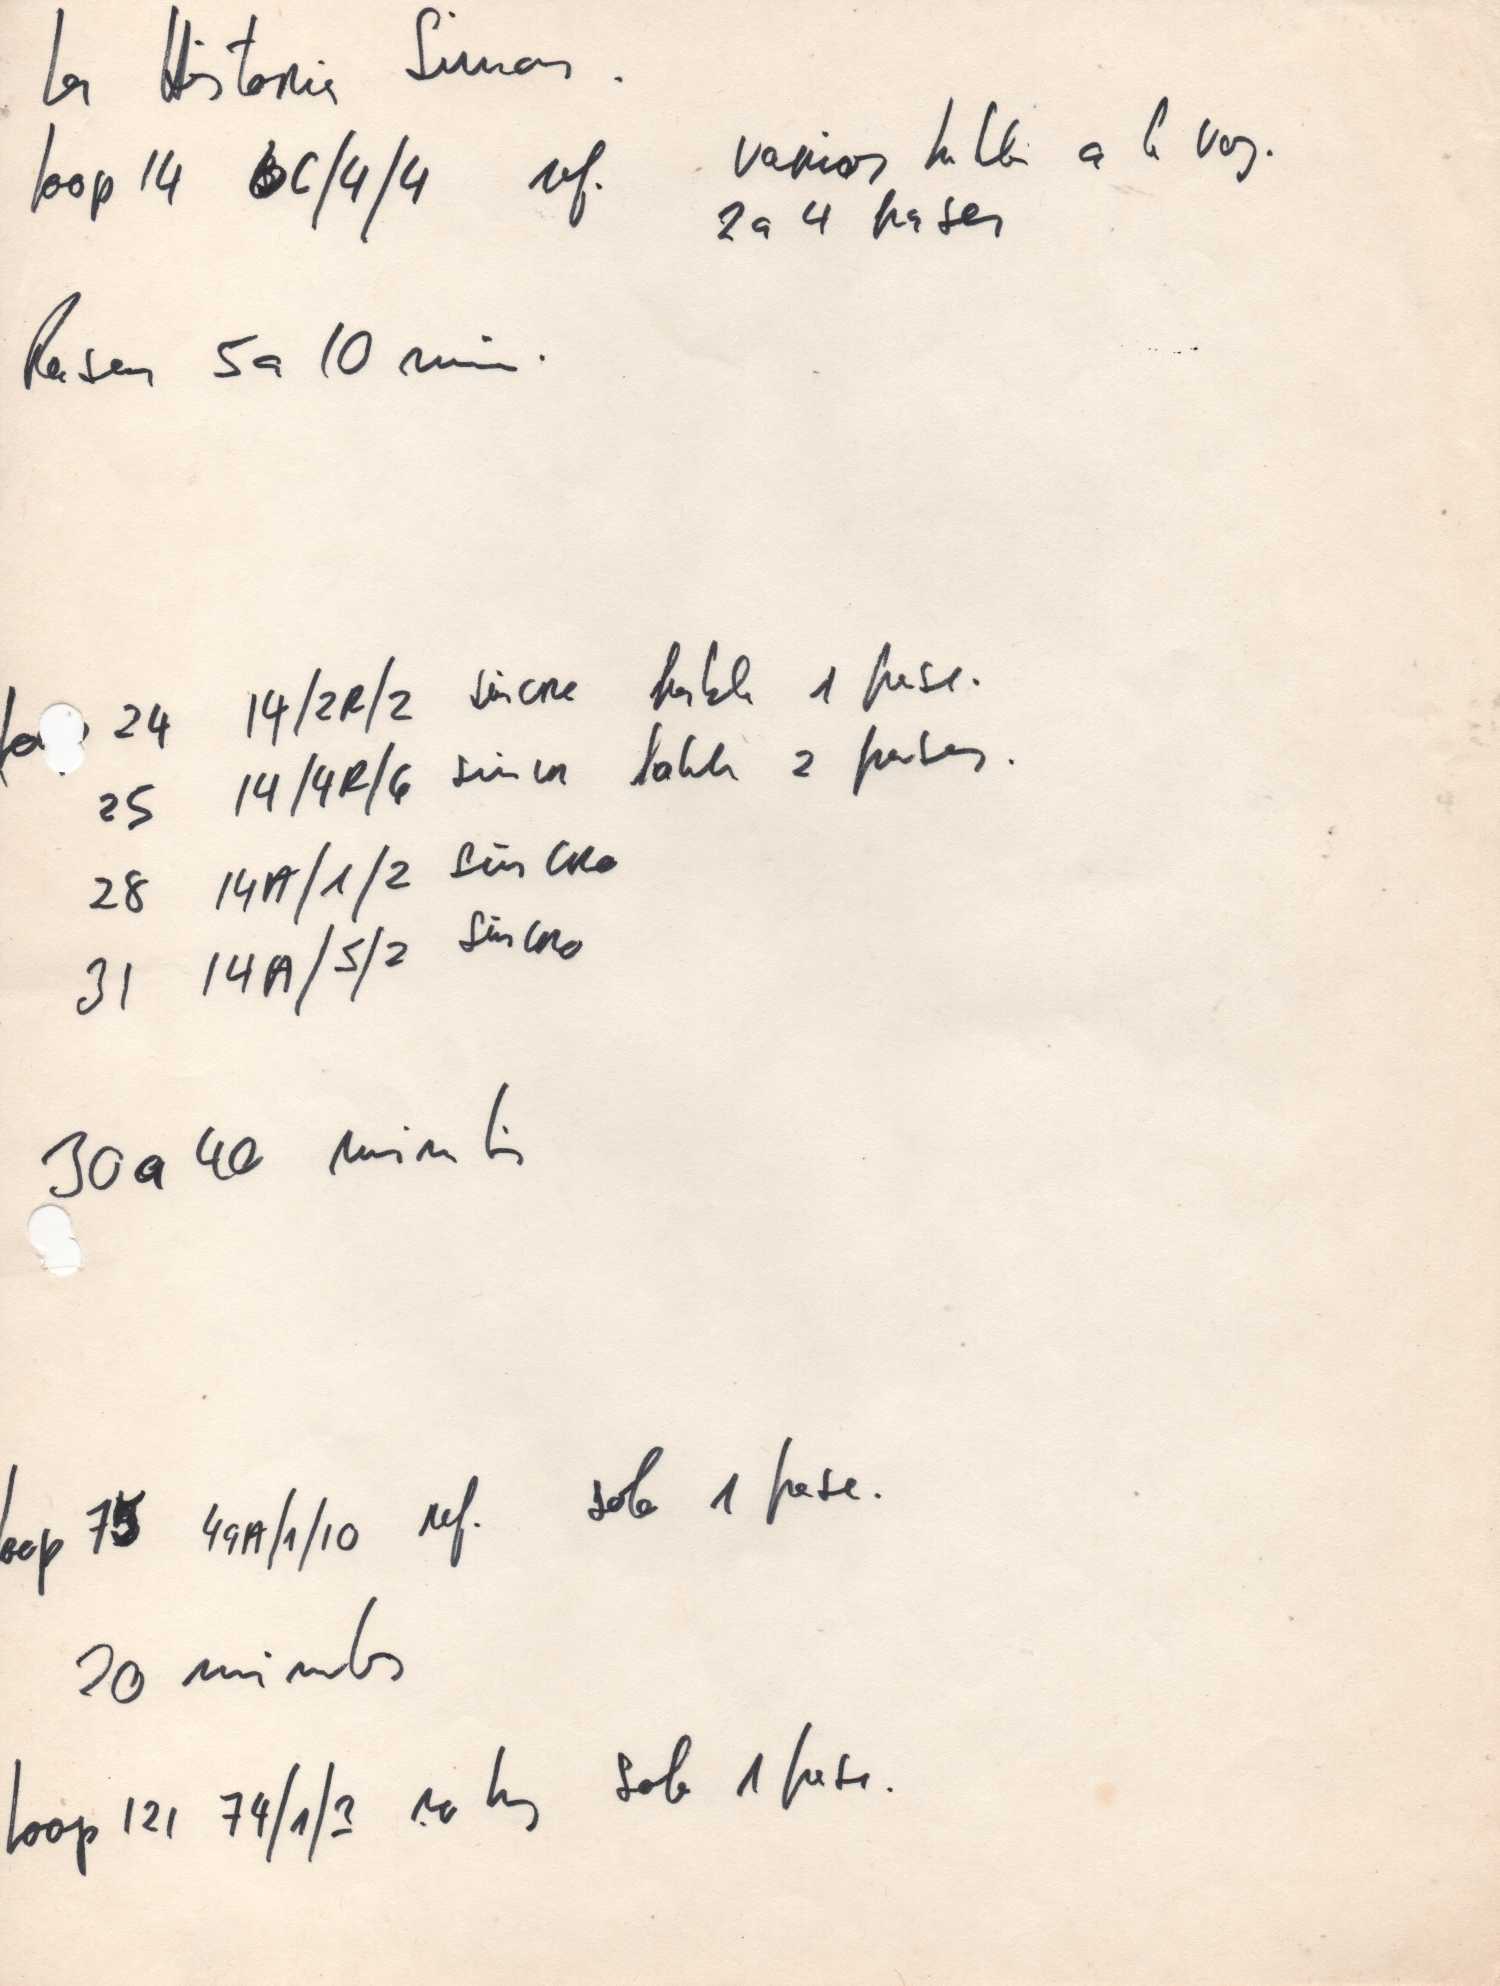 La Historia
loop 14 6C/4/4 ref. varios habla a la voz.
2 a 4 pases
Pasen 5 a 10 min.
loop 24 14/2R/2 sincro habla 1 pase.
25 14/4R/6 sincro habla 2 pases.
28 14A/1/2 sincro
31 14A/5/2 sincro
30 a 40 minutos
loop 75 49A/1/10 ref. solo 1 pase.
20 minutos
loop 121 74/1/3 no hay solo 1 pase.